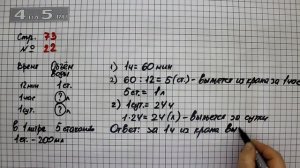 4 на 5
Стр. 73
№ 22
Время Объём воды
12 мин 1 ст.
1 час ? л
1 сут. ? л
в 1 литре 5 стаканов
1 ст. = 200 мл
1) 1ч = 60 мин
2) 60 : 12 = 5 (ст.) - выльется из крана за 1 час
5 ст. = 1 л
2) 1 сут. = 24 ч
1 · 24 = 24 (л) - выльется за сутки
Ответ: за 1ч из крана вы